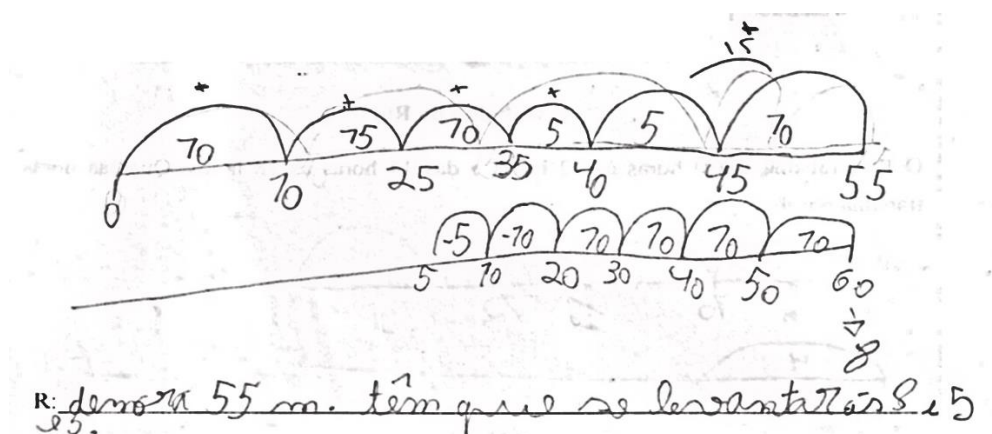 15
10 15 10 5 5 10
0 10 25 35 40 45 55
-5 -10 10 10 10 10
5 10 20 30 40 50 60
8
R: demora 55 m. têm que se levantar ás 8 e 5
e 5.